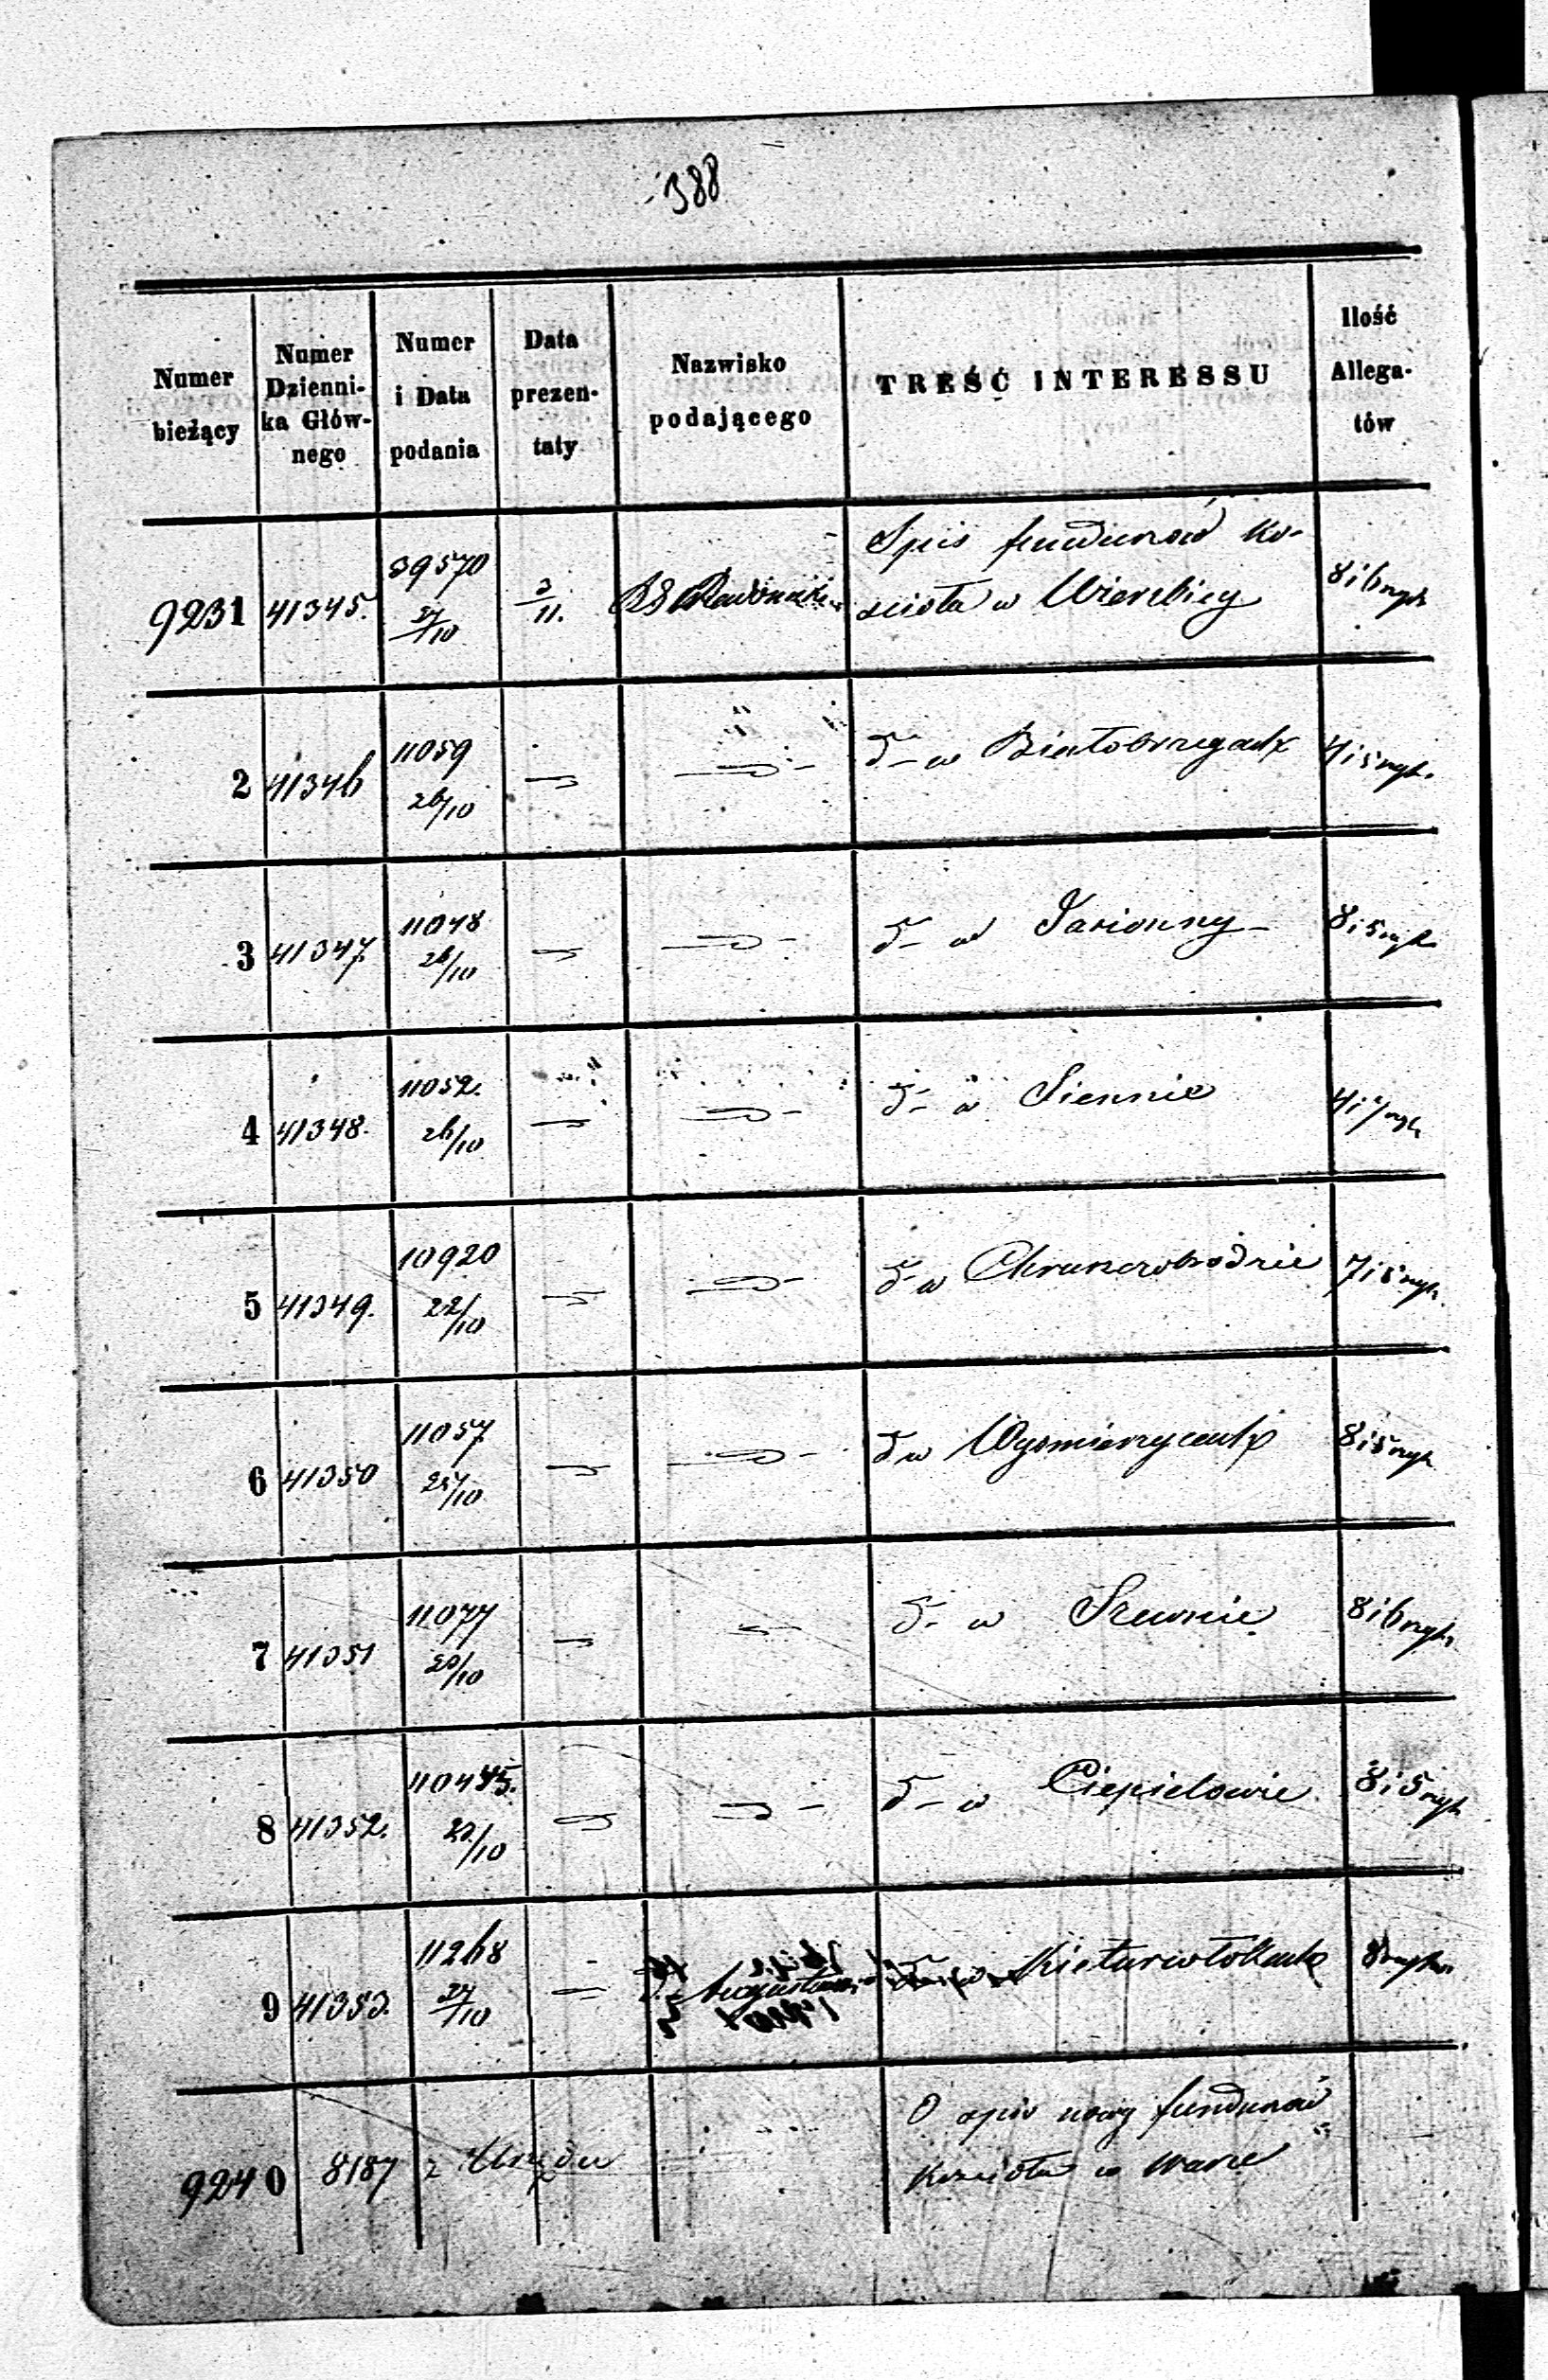 388
Numer bieżący
Numer Dzienni-ka Głów-nego
Numer i Data podania
Data prezen-taty
Nazwisko podającego
TREŚĆ INTERESSU
Ilość Allega-tów
9231 41345. 39570 27/10 3/11. RG Radomski Spis funduszów ko-
ścioła w Wierzbicy 8 i 6 ryk
2 41346 11059 26/10 —„— —„— dº w Białobrzegach 4 i 5 ryk.
3 41347. 11048 26/10 —„— —„— dº w Jasionny 8 i 5 ryk
4 41348. 11052. 26/10 —„— —„— dº w Siennie 4 i ryk
5 41349. 10920 22/10 —„— —„— dº w 7 i 5 ryk.
6 41350 11057 25/10 —„— —„— dº w Wyśmierzycach 8 i 5 ryk
7 41351 11077 20/10 —„— —„— dº w Szewnie 8 i 6 ryk.
8 41352. 110445. 20/10 —„— —„— dº w Ciepielowie 8 i 5 ryk
9 41353. 11268 27/10 —„— Augustow. w 8 ryk.
9240 8187 z Urzędu O spis nowy funduszów
kościoła w Warce